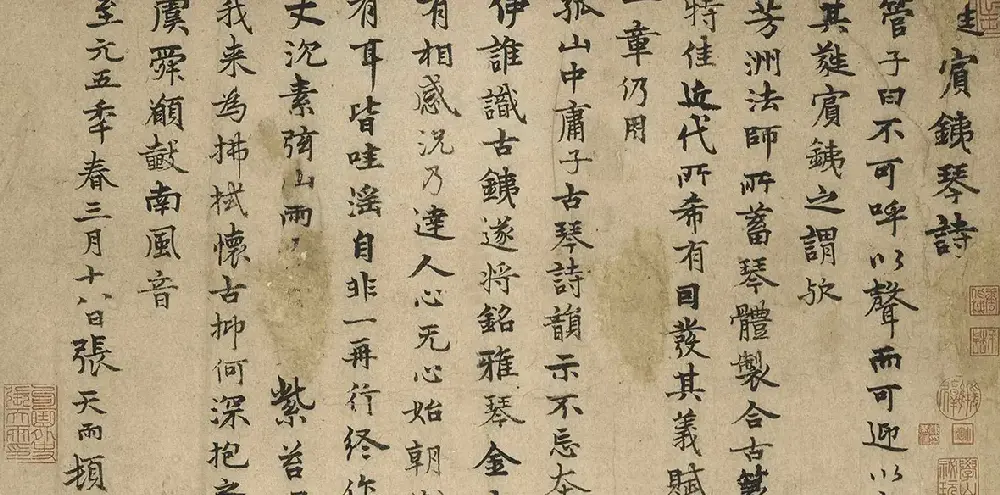 蕤賓鐵琴詩
管子曰不可呼以聲而可迎以
其蕤賓鐵之謂歟
芳洲法師所蓄琴體製合古
特佳近代所希有因發其義賦
一章仍用
孤山中庸子古琴詩韻示不忘本
伊誰識古鐵遂將銘雅琴金
有相感況乃達人心无心始朝
有耳皆哇滛自非一再行終
丈沉素弦山雨 紫苔
我来為拂拭懷古抑何深抱之
虞舜願鼓南風音
至元五年春三月十八日張天雨頓